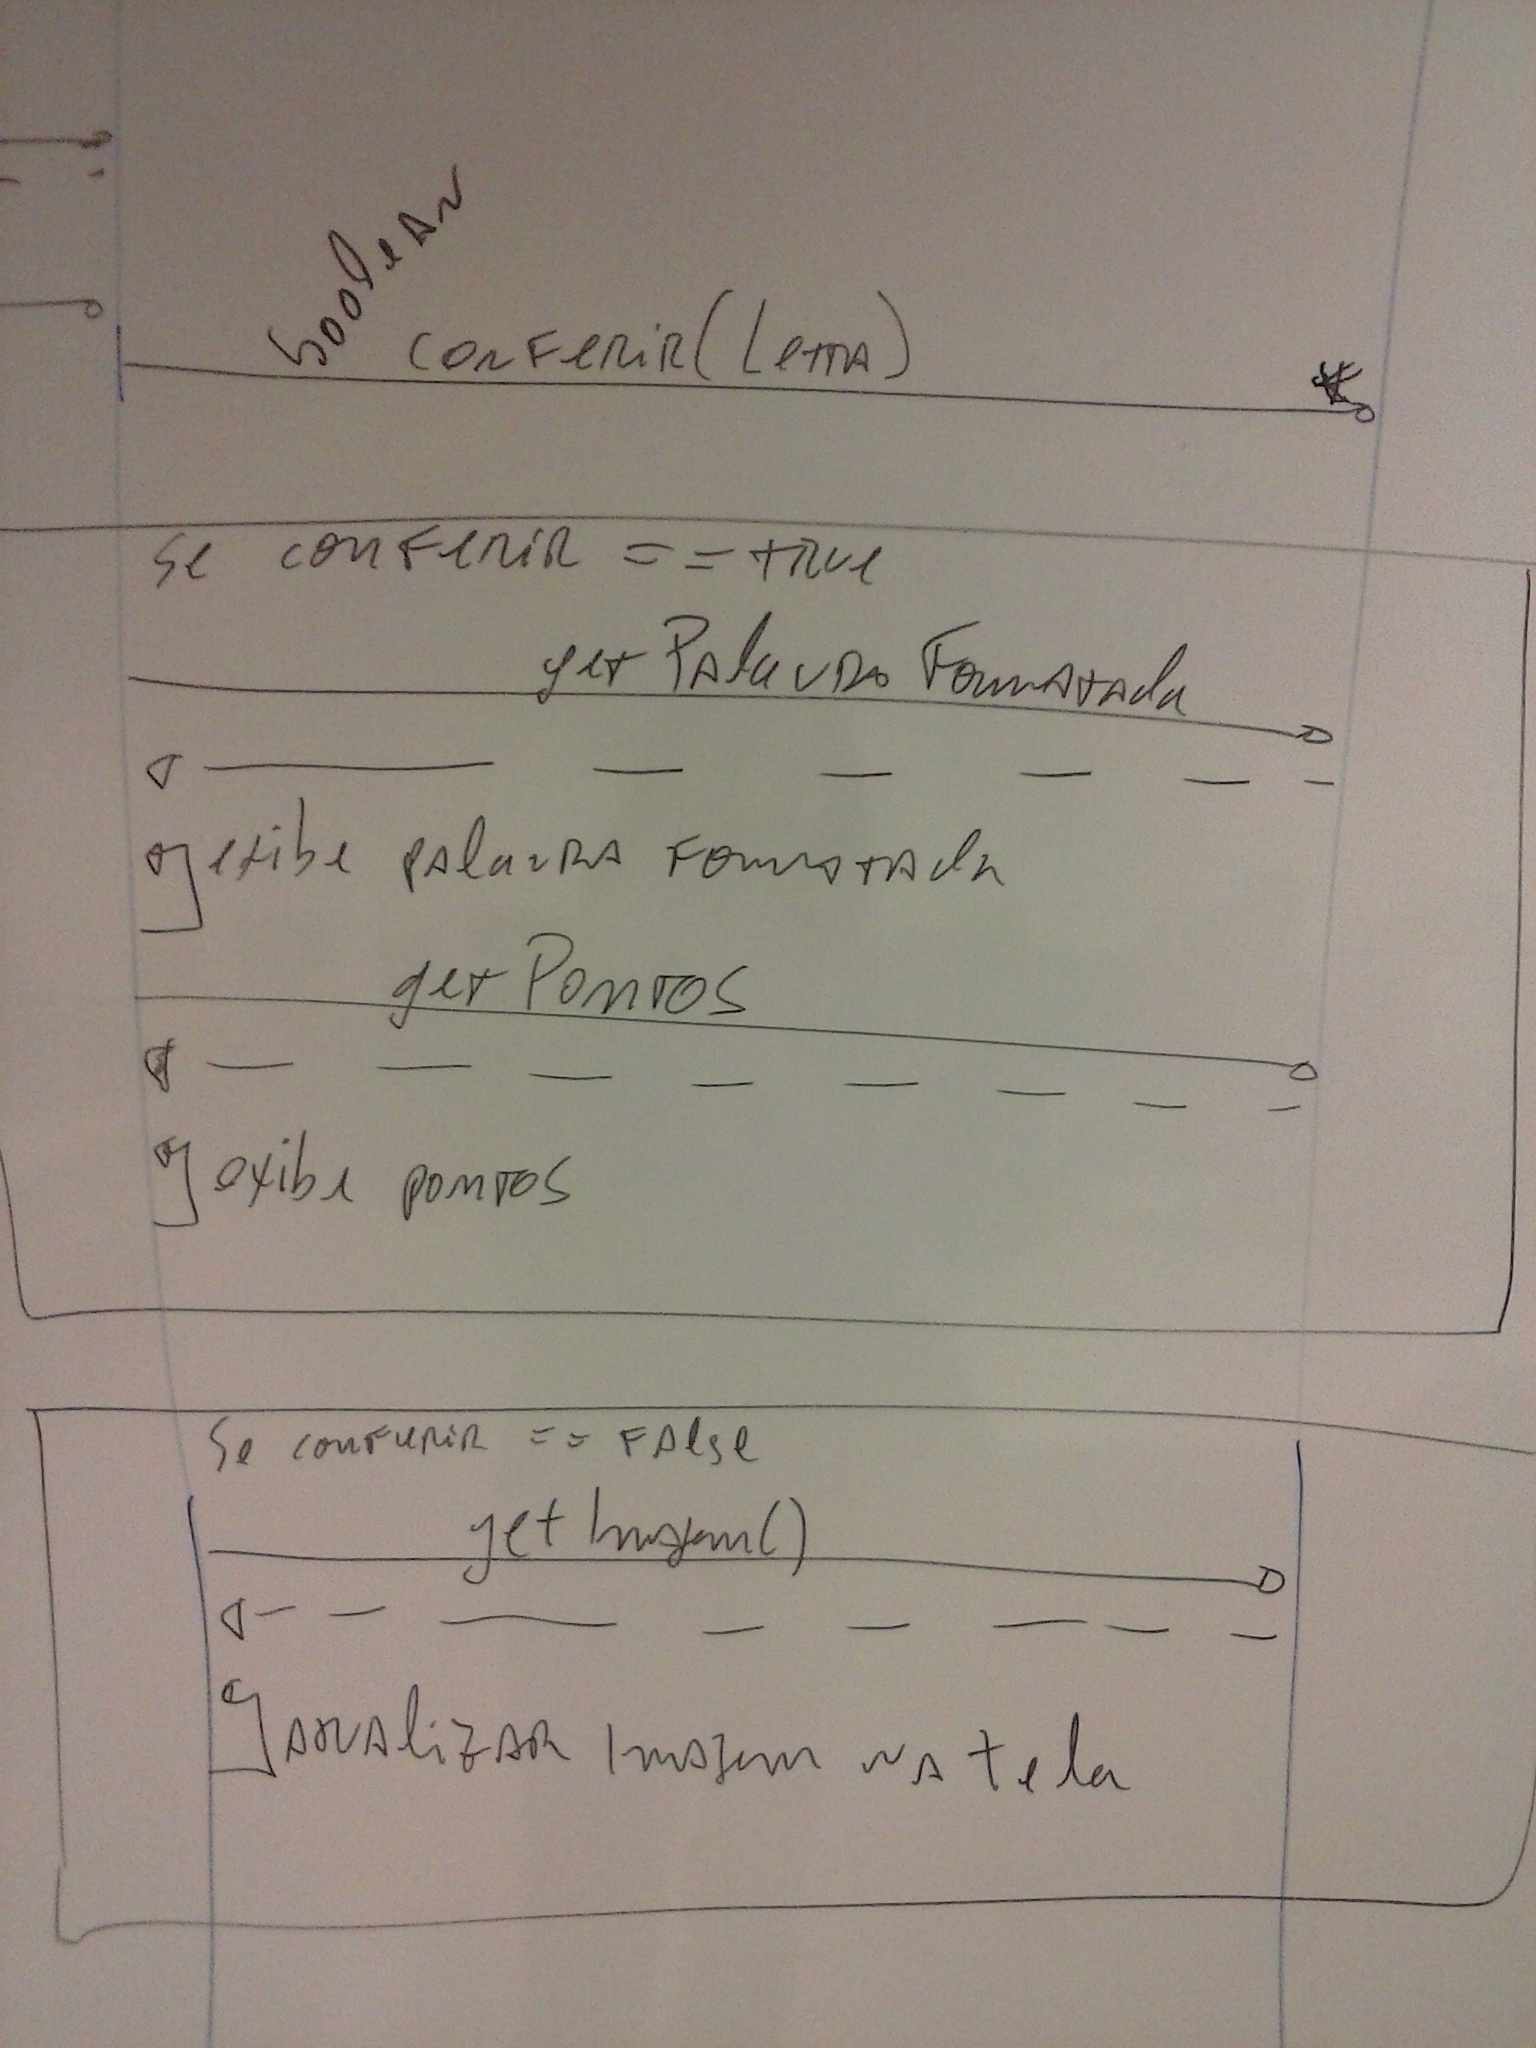 boolean
conferir(Letra)
se conferir == true
get Palavra Formatada
exibe palavra formatada
get Pontos
exibe pontos
Se conferir == false
get Imagem()
atualizar Imagem na tela